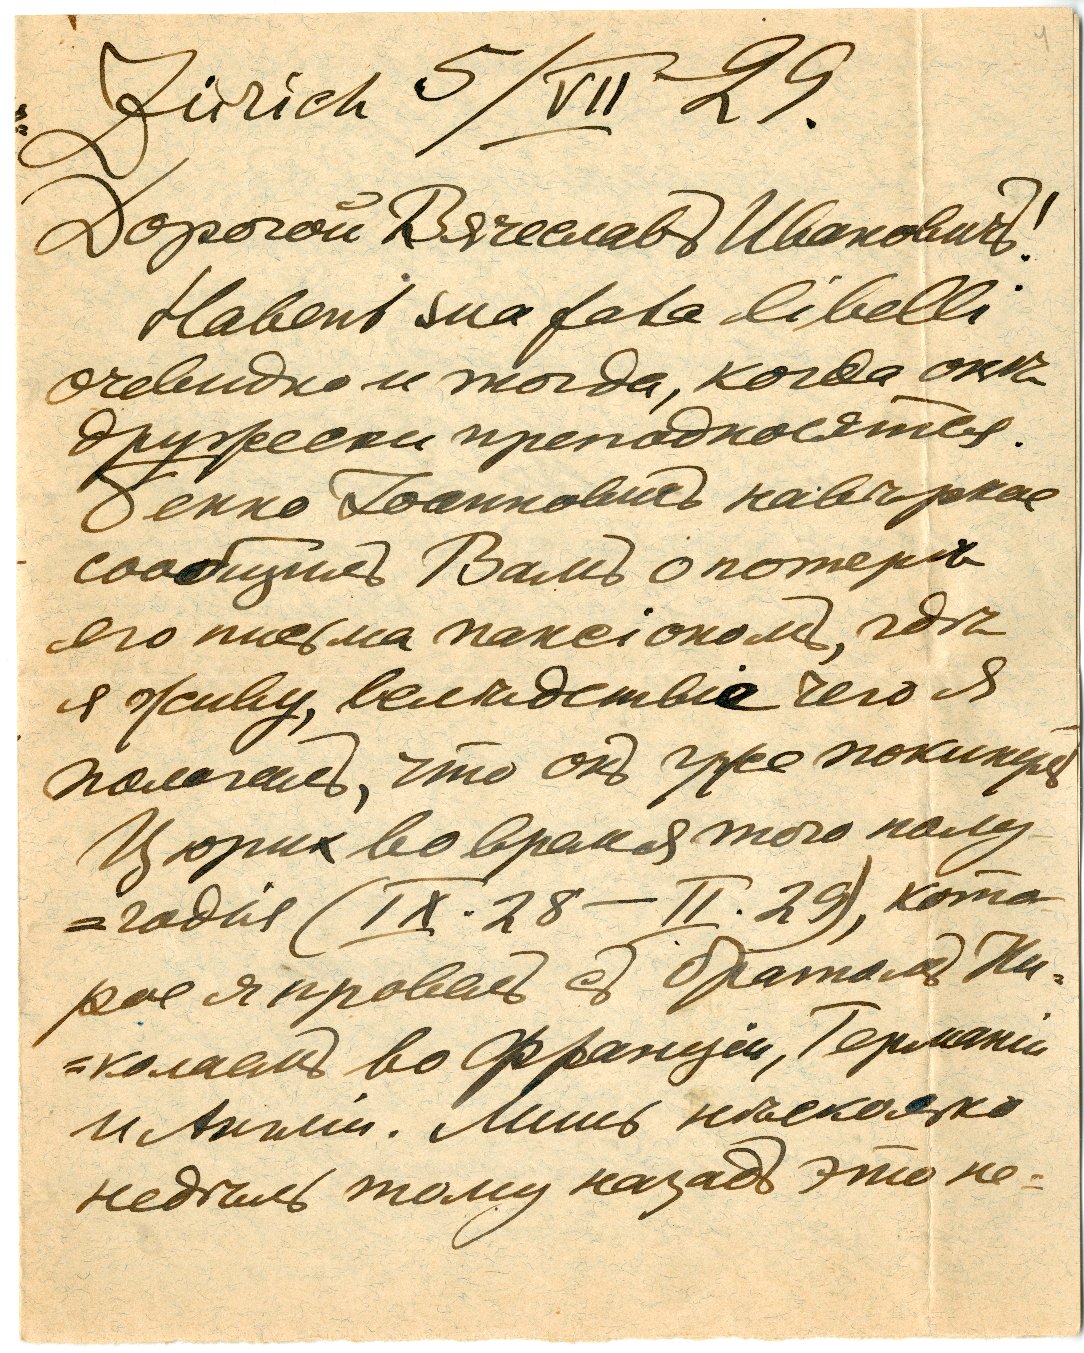 Zürich 5/VII 29.
Дорогой Вячеславъ Ивановичъ!
Habent sua fata libelli
очевидно и тогда, когда онѣ
дружески преподносятся.
Генко Іоанновичъ навѣрное
сообщилъ Вамъ о потерѣ
его письма пансіономъ, гдѣ
я живу, вслѣдствіе чего я
полагалъ, что онъ уже покинулъ
Цюрих во время того полу
=годія (IX. 28 — II. 29), кото-
рое я провелъ съ братомъ Ни-
=колаемъ во Франціи, Германіи
и Англіи. Лишь нѣсколько
недѣль тому назадъ это не-